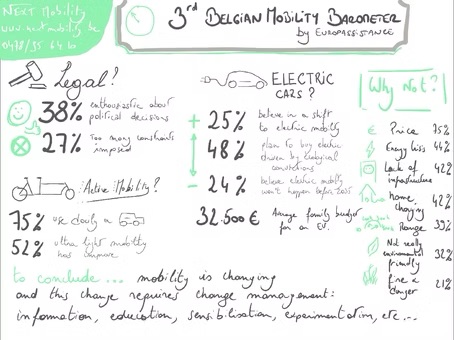 NEXT Mobility
www.nextmobility.be
3rd BELGIAN MOBILITY BAROMETER
by EUROPASSISTANCE
Legal?
38% enthousiastic about
political decisions
27% Too many constraints
imposed
Active Mobility?
75% use daily a
52% ultra light mobility
has
ELECTRIC
CARS?
+ 25% believe in a shift
to electric mobility
48% plan to buy electric
driven by ecological
convictions
- 24% believe electric mobility
won't happen before 2035
32.500 € Average family budget
for an EV.
Why Not?
€ Price 75%
Energy bills 44%
Lack of 42%
infrastructure
Home 42%
charging
Range 39%
Not really 32%
environmental
friendly
Fire 21%
danger
to conclude... mobility is changing
and this change requires change management:
information, education, sensibilisation, experimentation, etc...